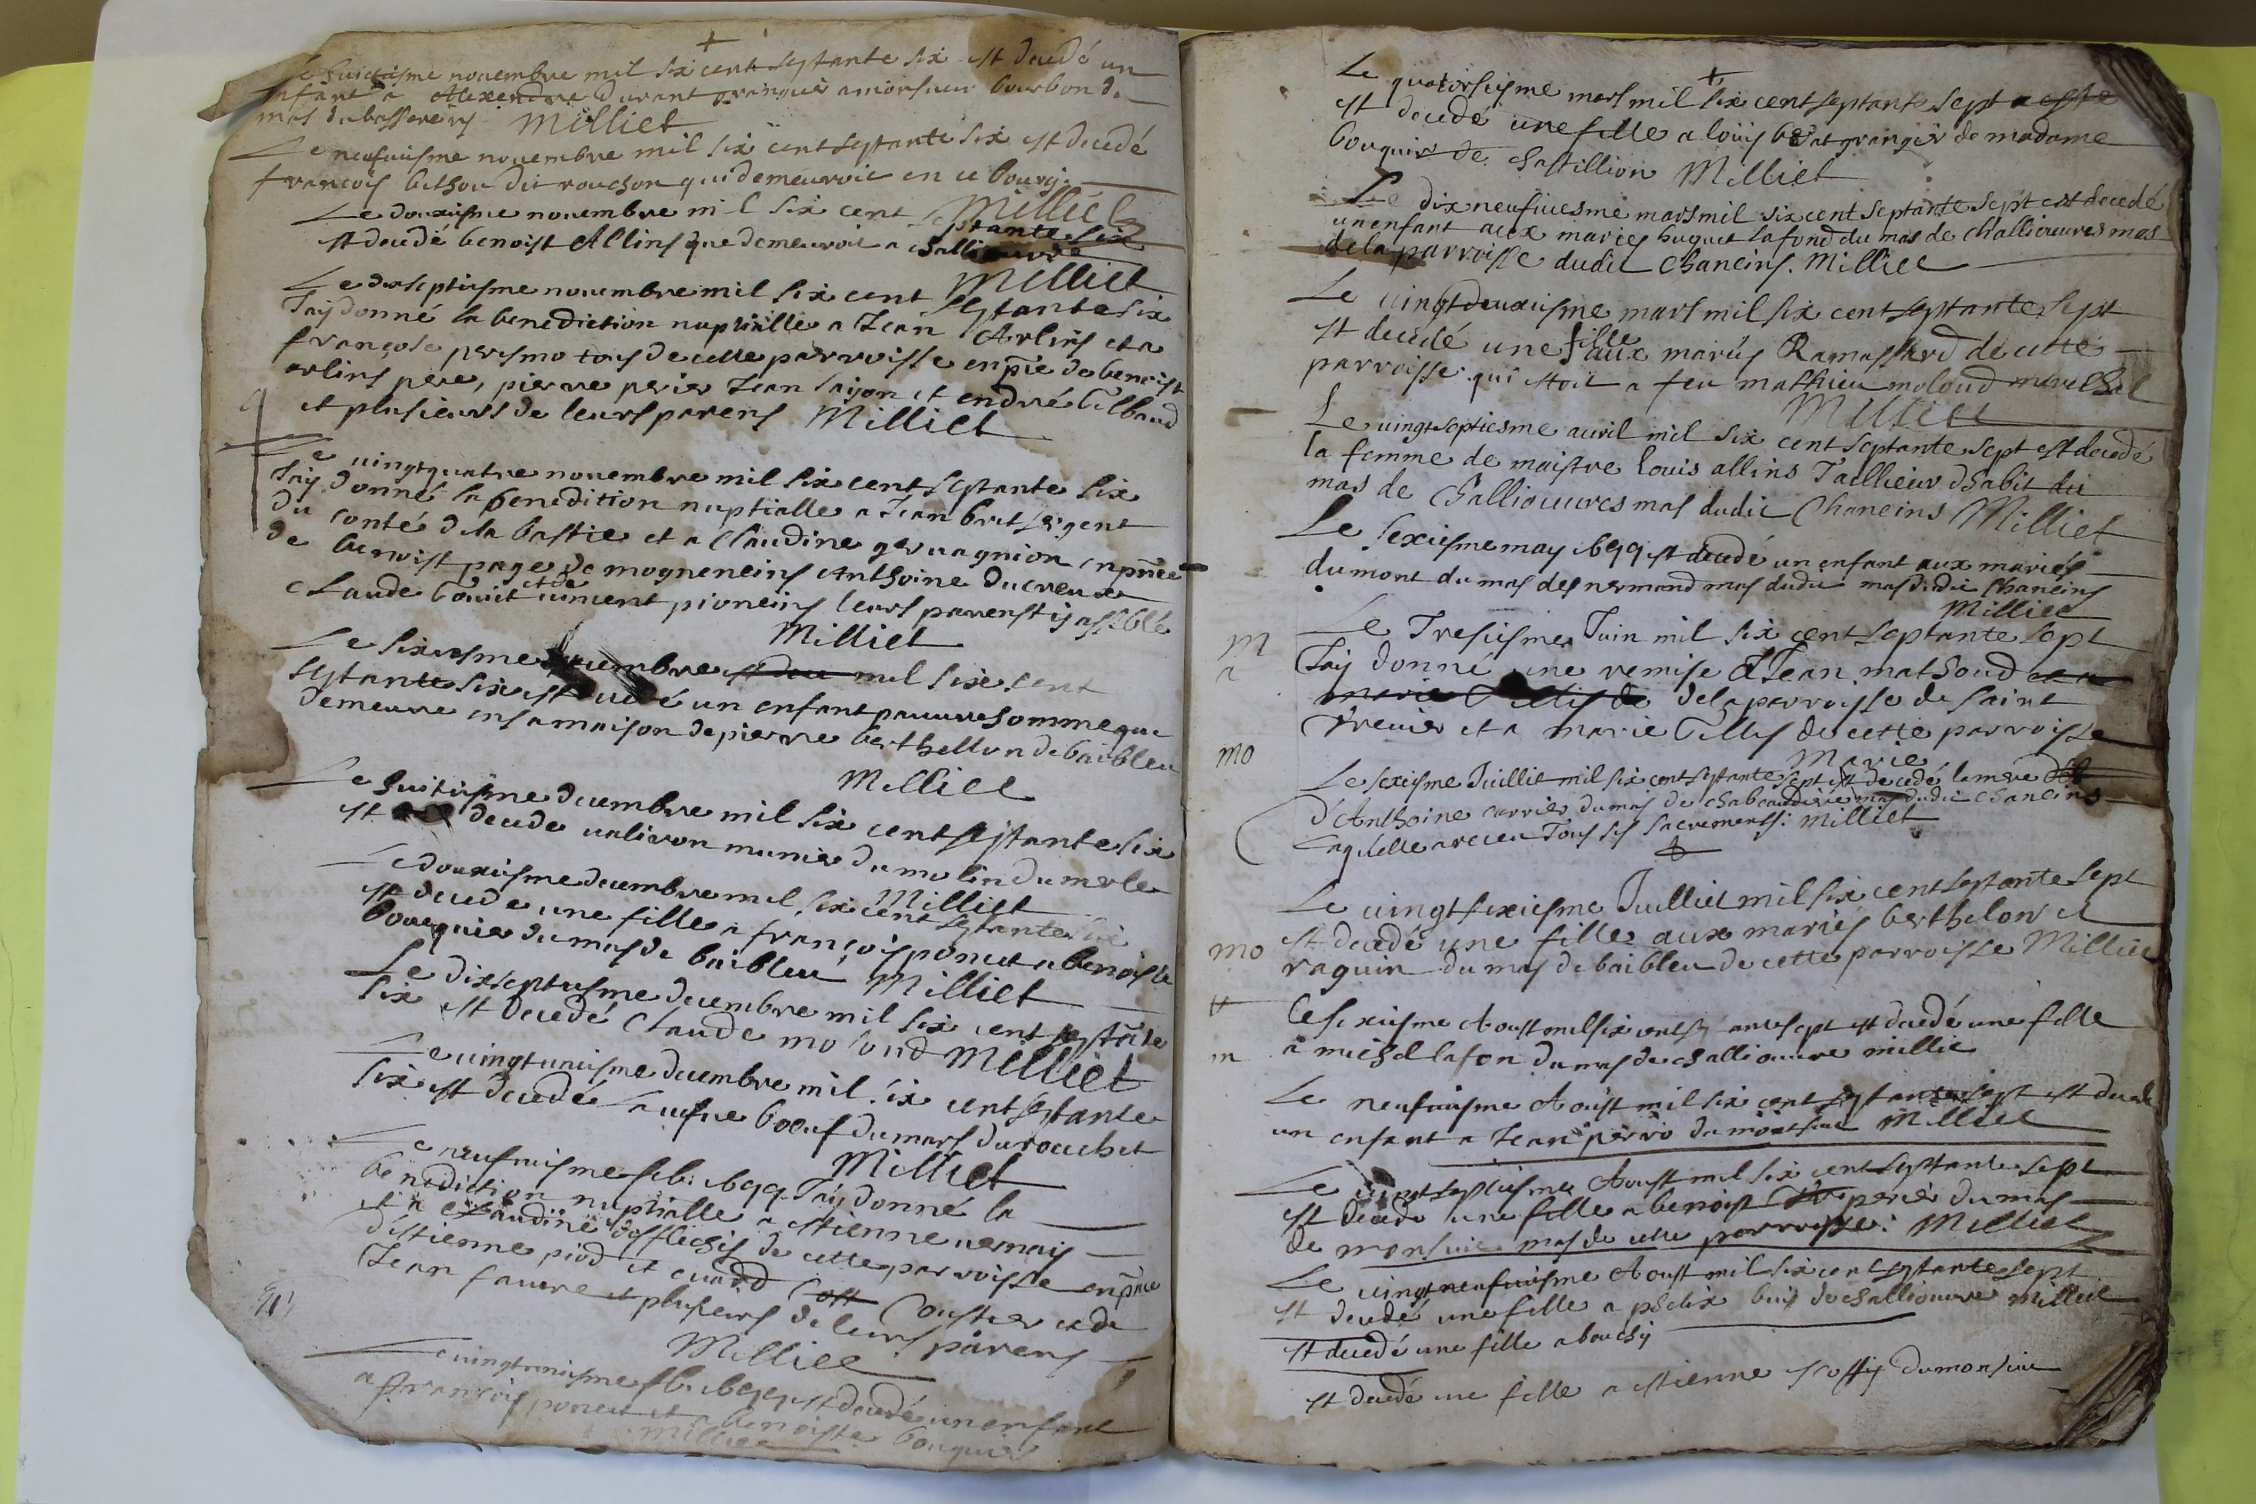 Le huictiesme novembre mil six cent septante six est decedé un
enfant a Alexendre Durant granger a monsieur bourbon du
mas Milliet
Le neufuiesme novembre mil six cent septante six est decedé
françois bethou dit rouchon qui demeuroit en ce bourg
Milliet
Le douxiesme novembre mil six cent septante six
est decedé benoist Allins que demeuroit a challiouvre
Milliet
Le dixseptiesme novembre mil six cent septante six
J'ay donné la benediction nuptialle a Jean Arlins et a
françoise peresmo tous de cette parroisse en pn̄ce de benoist
arlins pere, pierre perier Jean saijon et endré Gilbaud
et plusieurs de leurs parens Milliet
Le vingtquatre novembre mil six cent septante six
J'ay donné la benedition nuptialle a Jean brut sergent
du conté de la bastie et a Claudine gervagnion en pn̄ce
de benoist page de mogneneins Anthoine Ducreux
Claude bouit et de leurs parens
Milliet
Le sixiesme decembre mil six cent
septante six est decedé un enfant pauvre homme que
demeure en sa maison de pierre berthellon de baibleu
Milliet
Le huitiesme decembre mil six cent septante six
est decede valivon munier du molin du merle
Milliet
Le douxiesme decembre mil six cent septante six
est decede une fille a françois poncet a benoiste
bouquier du mas de baibleu Milliet
Le dixseptiesme decembre mil six cent septante
six est decedé Claude moloud Milliet
Le vingtuniesme decembre mil six cent septante
six est decedé la vefue boeuf du mas du rouchet
Milliet
Le neufuiesme feb: 1677 J'ay donné la
benediction nuptialle a estienne vernay
et a Claudine desflechis de cette parroisse en pn̄ce
d'estienne piod et Couster et de
Jean favre et plusieurs de leurs parens
Milliet
Le vingtuniesme feb. 1677 est decedé un enfant
a françois poncet et benoiste bouquier
Milliet
Le quatorsiesme mars mil six cent septante sept
est decedé une fille a louis berat granger de madame
bouquin de chastillion Milliet
Le dix neufuiesme mars mil six cent septante sept est decedé
un enfant aux mariés huguet lafond du mas de challiouvres mas
de la parroisse dudit Chaneins. Milliet
Le vingtdeuxiesme mars mil six cent septante sept
est decedé une fille aux mariés Ramassard de cette
parroisse qui estoit a feu mathieu moloud mareschal
Milliet
Le vingtseptiesme avril mil six cent septante sept est decedé
la femme de maistre louis allins Tailleur d'habit du
mas de Challiouvres mas dudit Chaneins Milliet
Le sexiesme may 1677 est decedé un enfant aux mariés
dumont du mas des normand mas dudit mas dudit Chaneins
Milliet
Le Tresiesme Juin mil six cent septante sept
J'ay donné une remise a Jean mathoud et a
marie Gillis de de la parroisse de saint
trevier et a marie Gillis de cette parroisse
Marie
Le sexiesme Juillet mil six cent septante sept est decedé la mere
d'Anthoine carrier du mas de chabeaudiere mas dudit Chaneins
laquelle a receu Tous ses sacrements: Milliet
Le vingtsexiesme Juilliet mil six cent septante sept
est decedé une fille aux mariés berthelon et
raquin du mas de baibleu de cette parroisse Milliet
Le sixiesme Aoust mil six cent septante sept est decedé une fille
a michel lafon du mas de challiouvre millie
Le neufuiesme Aoust mil six cent septante sept est decede
un enfant a Jean perro du monsieur Milliet
Le vingt septiesme Aoust mil six cent septante sept
est decede une fille a benoist perier du mas
de monsuie mas de cette parroisse: Milliet
Le vingt neufuiesme Aoust mil six cent septante sept
est decedé une fille a phelix buis de challiouvre milliet
est decedé une fille a bouchy
est decedé une fille a estienne escoffy du monsuie